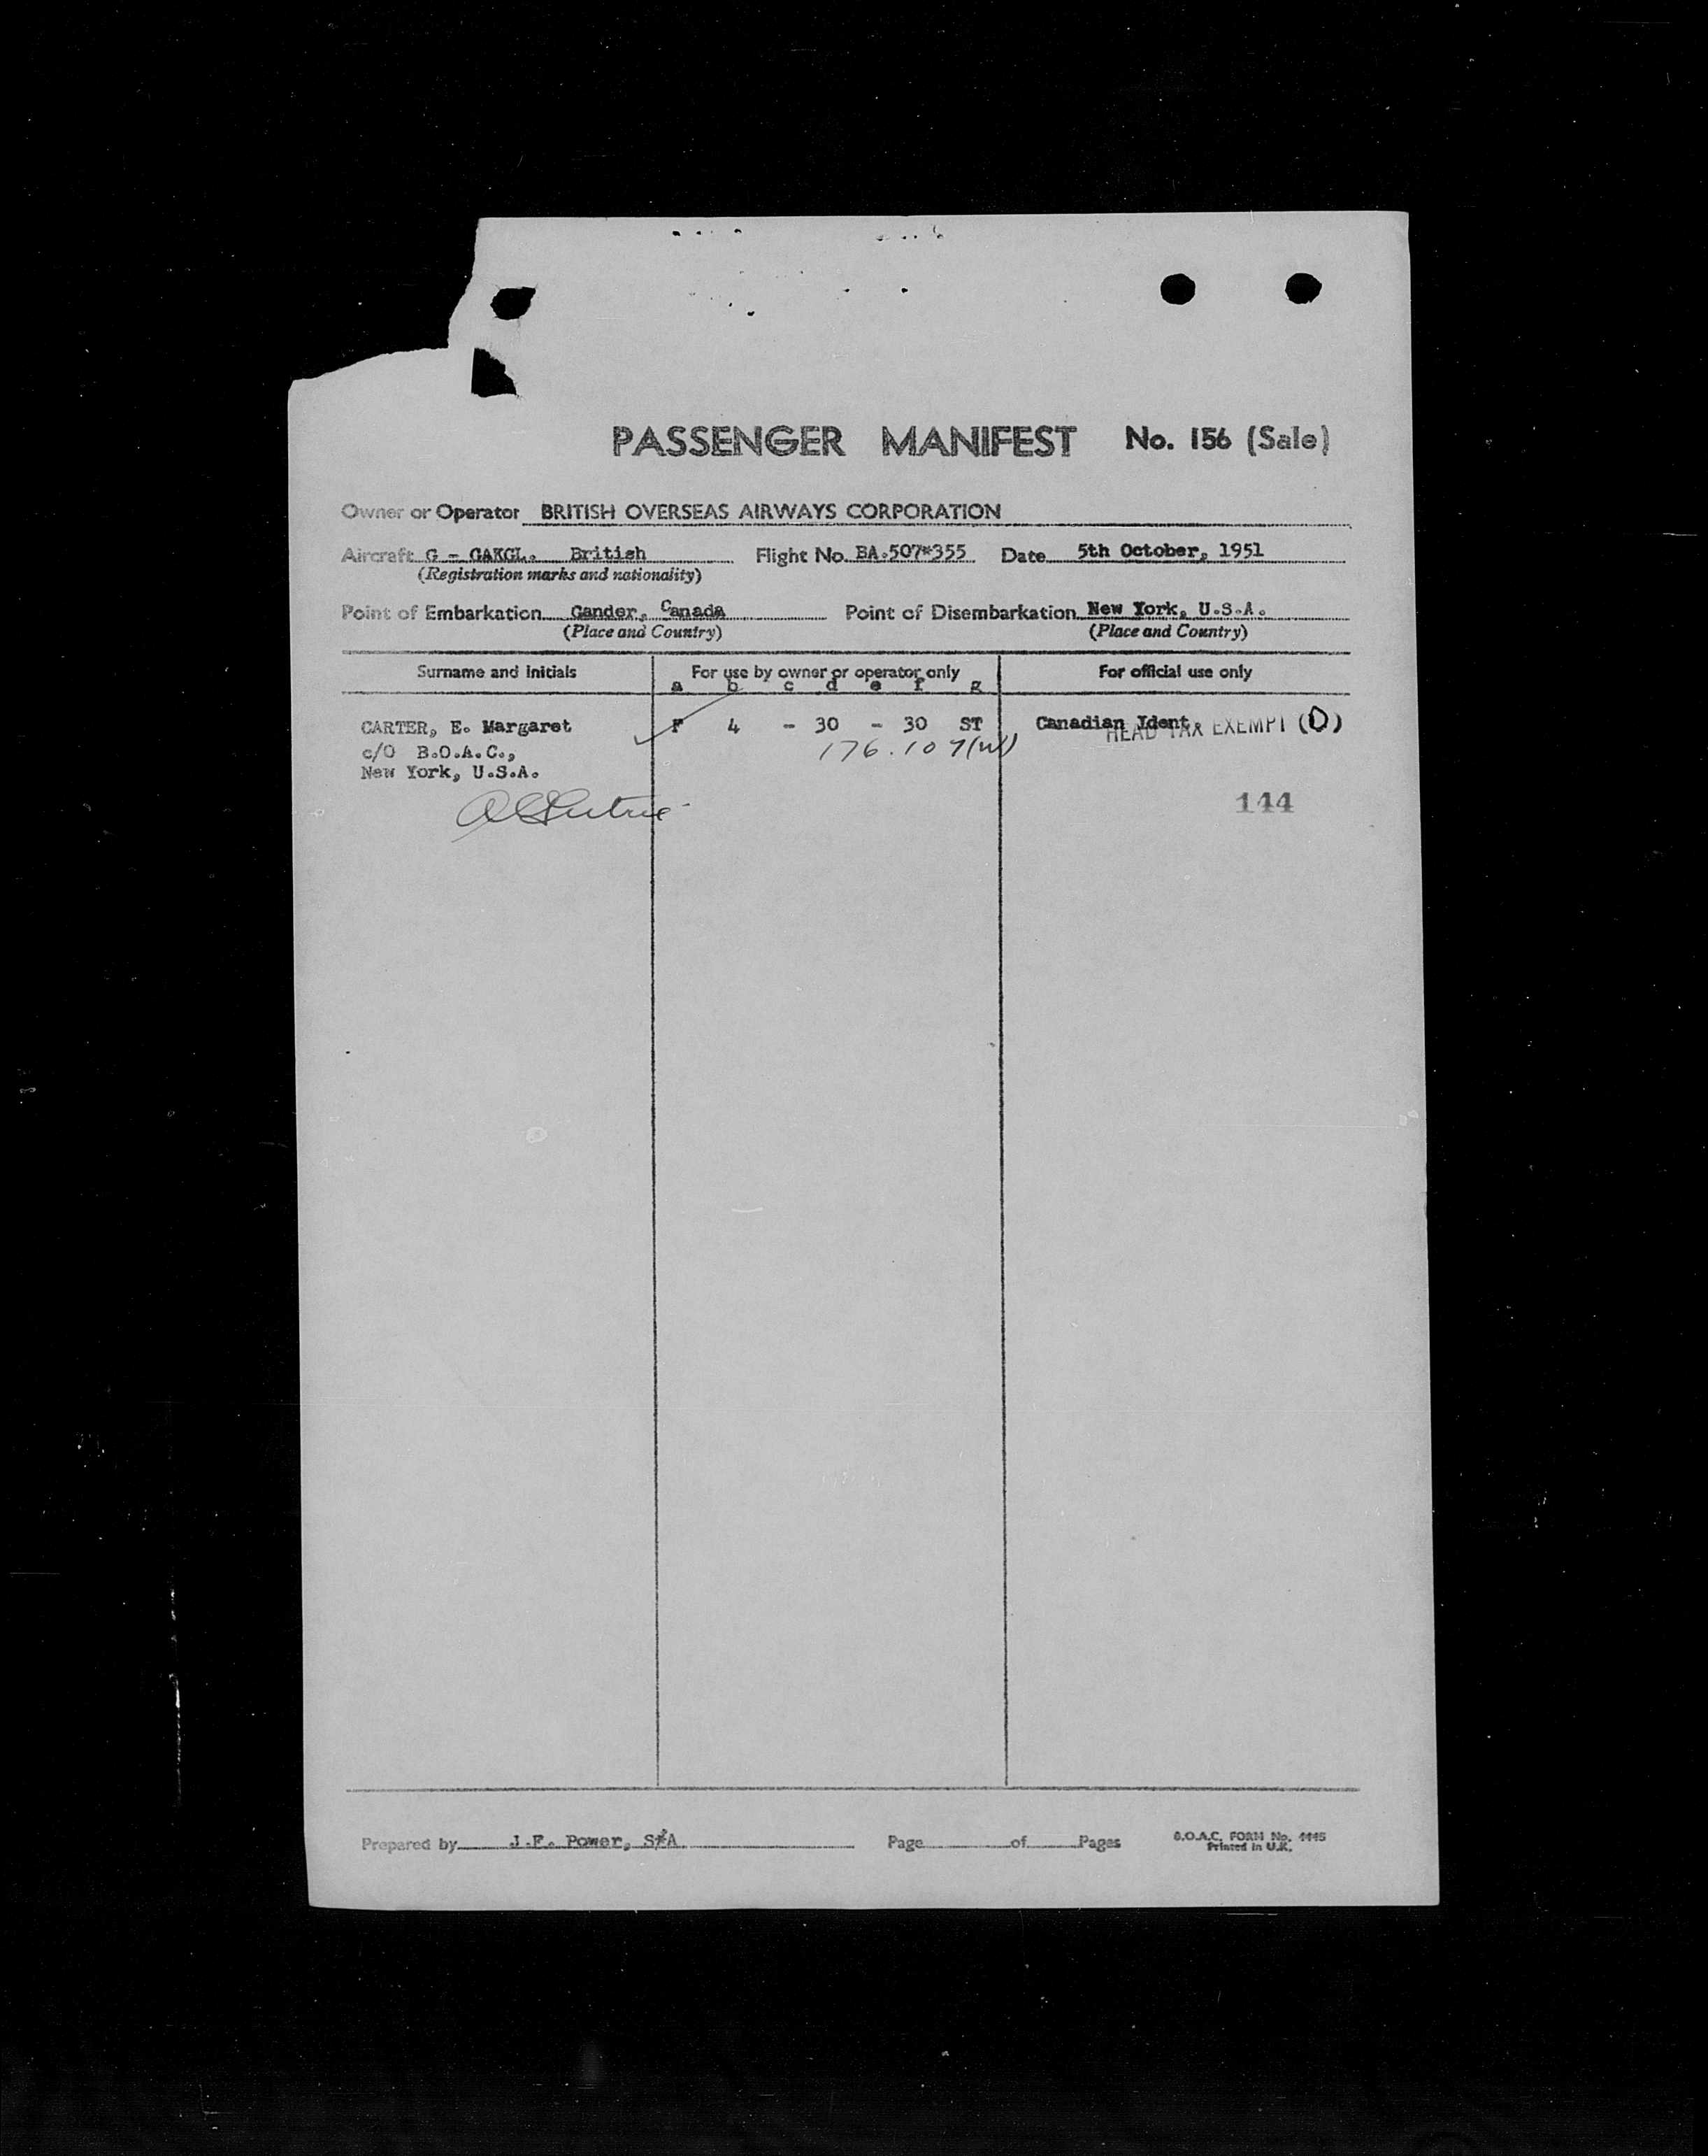 PASSENGER MANIFEST No. 156 (Sale)
Owner or Operator BRITISH OVERSEAS AIRWAYS CORPORATION
Aircraft G - GAKGL. British Flight No. BA.507*355 Date 5th October, 1951
(Registration marks and nationality)
Point of Embarkation Gander, Canada Point of Disembarkation New York, U.S.A.
(Place and Country) (Place and Country)
Surname and Initials For use by owner or operator only For official use only
a b c d e f g
CARTER, E. Margaret F 4 - 30 - 30 ST Canadian Ident. HEAD TAX EXEMPT (D)
c/O B.O.A.C., 176.107(W)
New York, U.S.A.
144
Prepared by J.F. Power, S*A Page of Pages B.O.A.C. FORM No. 4445
Printed in U.K.